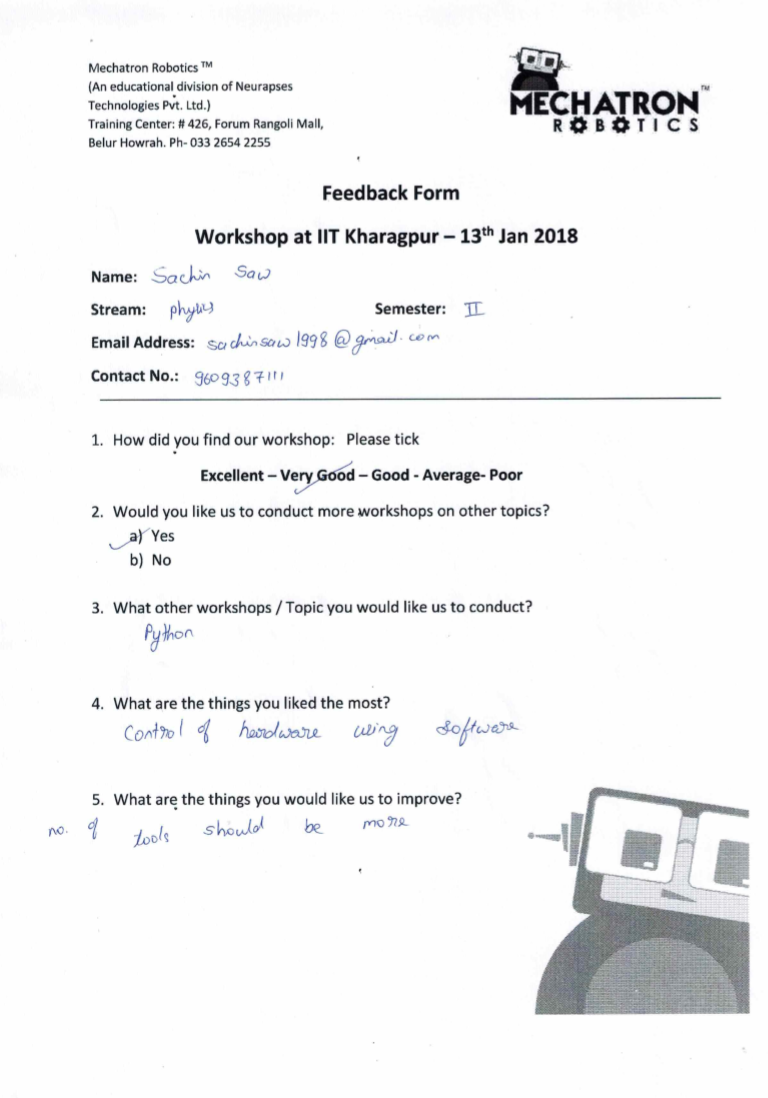 Mechatron Robotics ™
(An educational division of Neurapses
Technologies Pvt. Ltd.)
Training Center: # 426, Forum Rangoli Mall,
Belur Howrah. Ph- 033 2654 2255
MECHATRON™
ROBOTICS
Feedback Form
Workshop at IIT Kharagpur – 13th Jan 2018
Name: Sachin Saw
Stream: physics Semester: II
Email Address: sachinsaw1998@gmail.com
Contact No.: 9609387111
1. How did you find our workshop: Please tick
Excellent – Very Good – Good - Average- Poor
2. Would you like us to conduct more workshops on other topics?
a) Yes
b) No
3. What other workshops / Topic you would like us to conduct?
Python
4. What are the things you liked the most?
Control of hardware using software
5. What are the things you would like us to improve?
no. of tools should be more